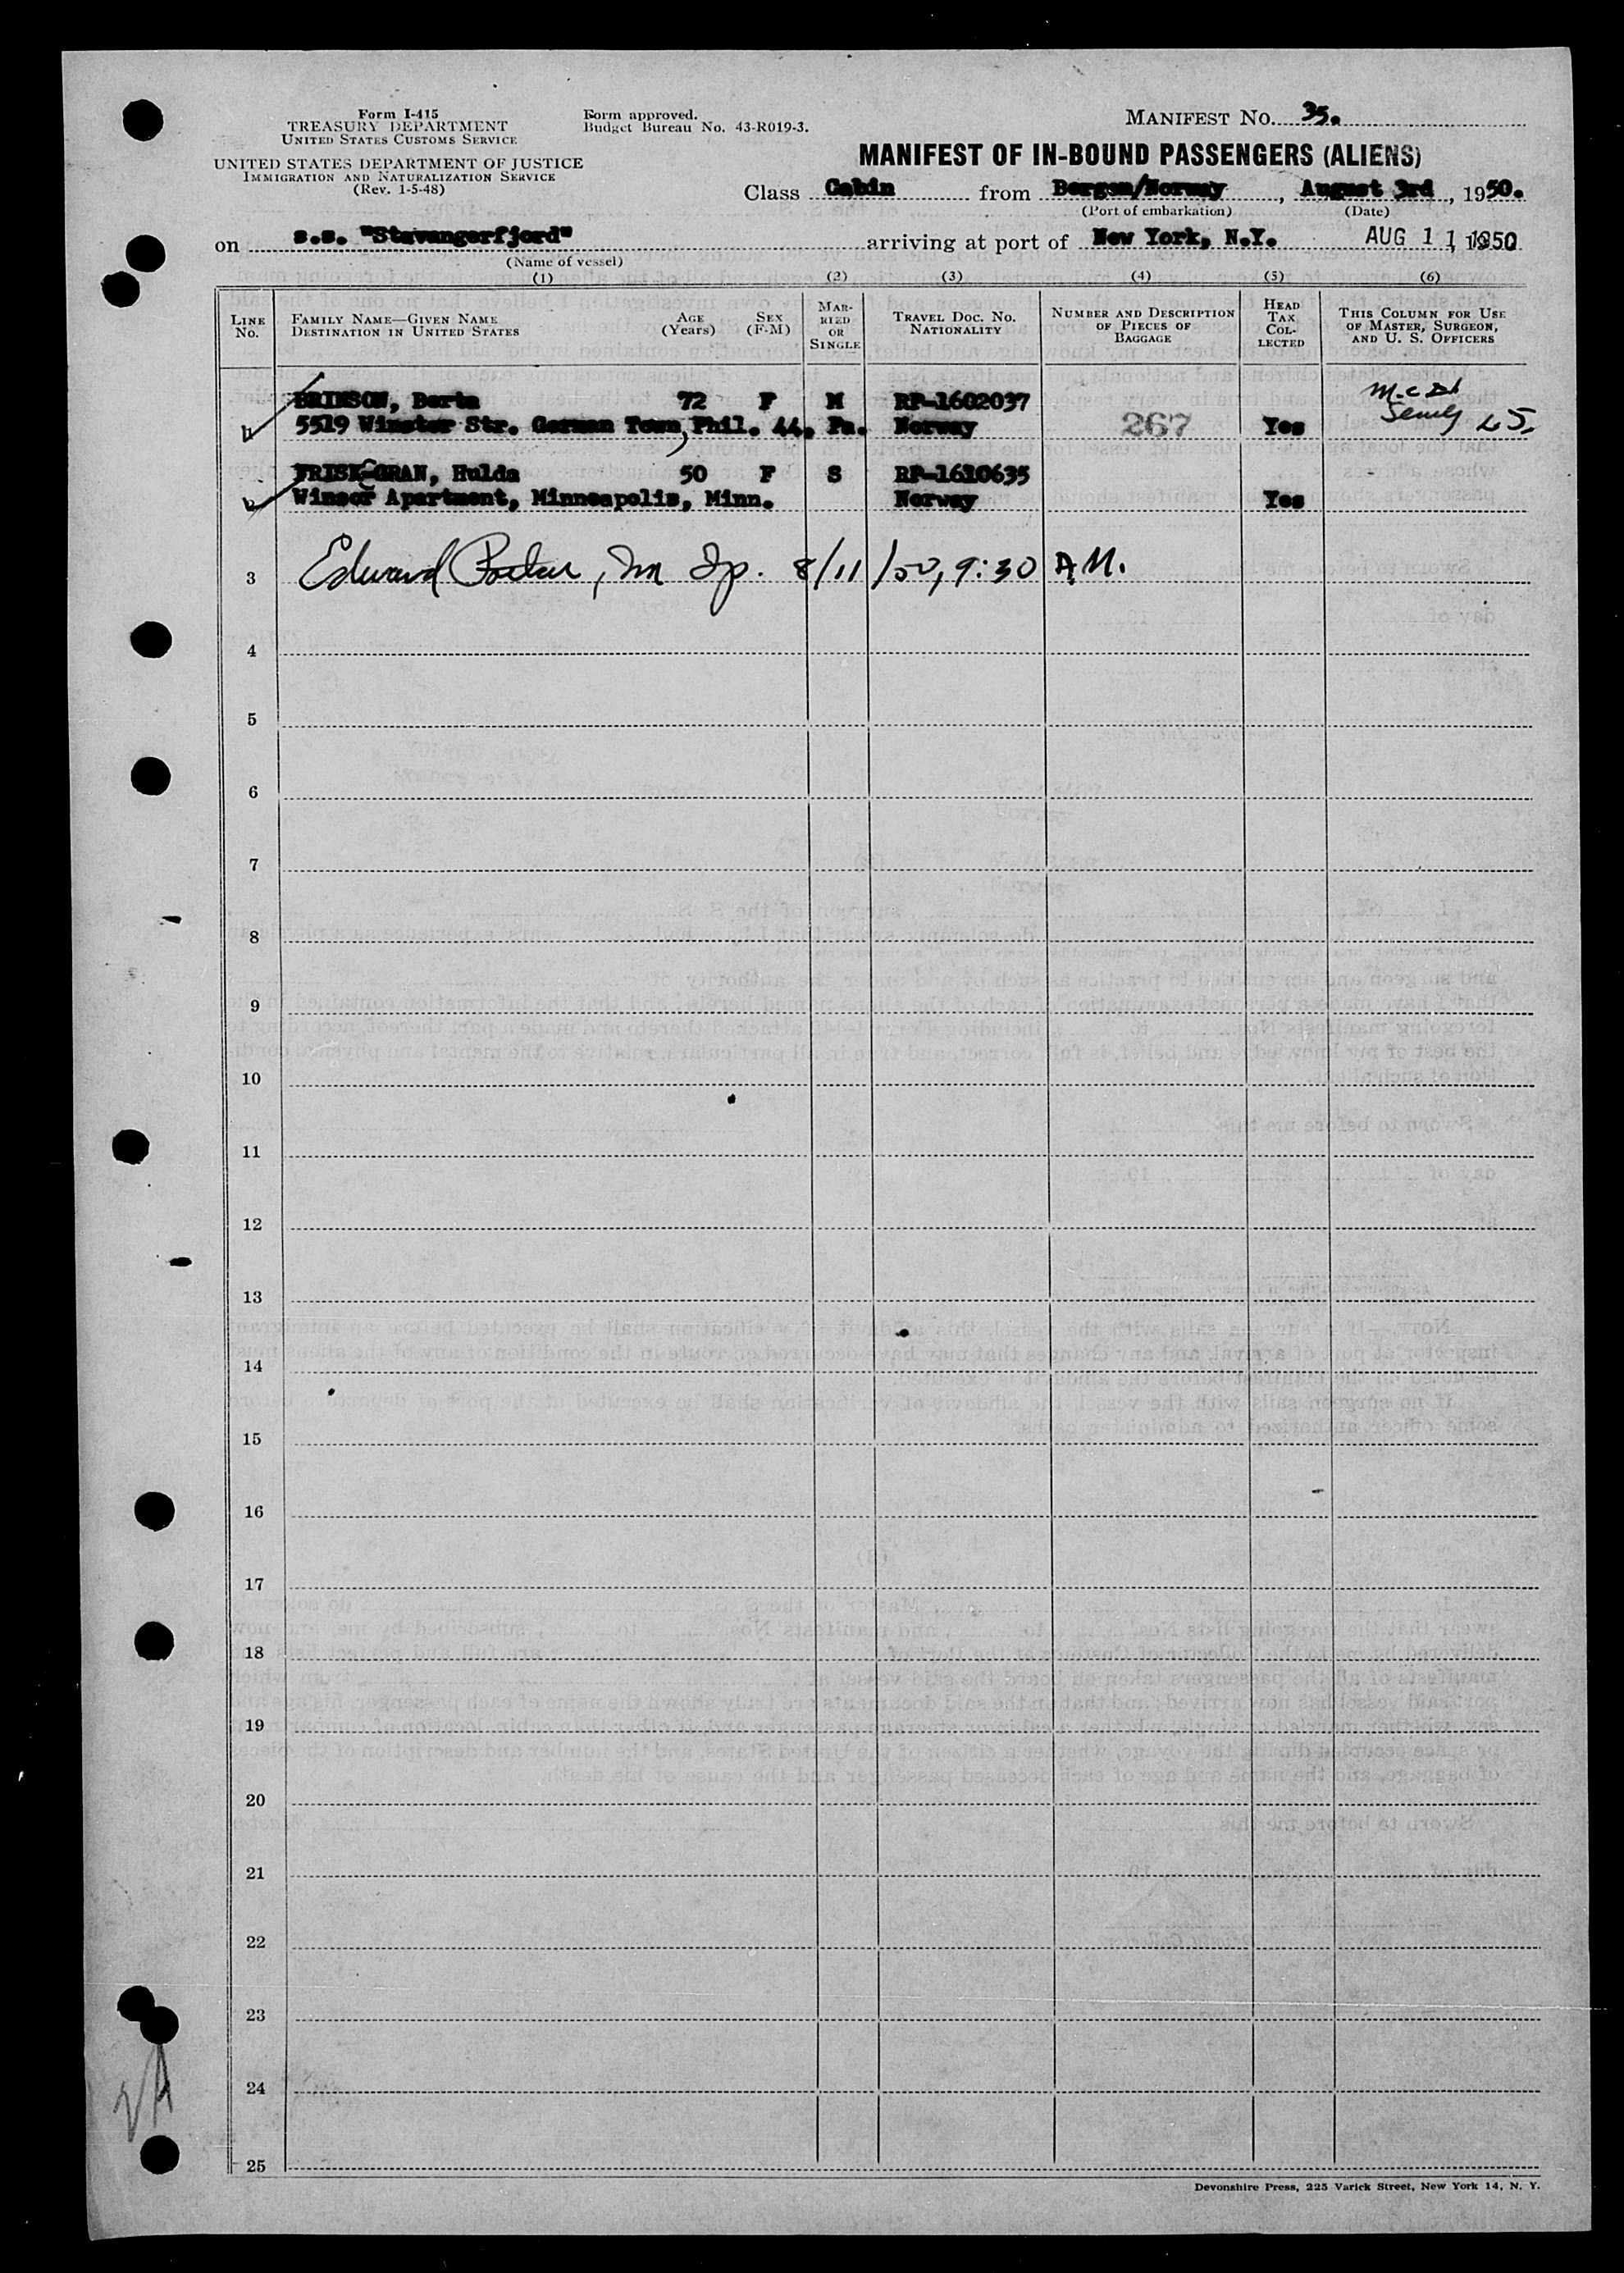 Form I-415
TREASURY DEPARTMENT
UNITED STATES CUSTOMS SERVICE
UNITED STATES DEPARTMENT OF JUSTICE
IMMIGRATION AND NATURALIZATION SERVICE
(Rev. 1-5-48)
Form approved.
Budget Bureau No. 43-R019-3.
MANIFEST NO. 35.
MANIFEST OF IN-BOUND PASSENGERS (ALIENS)
Class Cabin from Bergen/Norway, August 3rd, 1950.
(Port of embarkation) (Date)
on s.s. "Stavangerfjord" arriving at port of New York, N.Y. AUG 11 1950
(Name of vessel)
(1) (2) (3) (4) (5) (6)
LINE NO.
FAMILY NAME—GIVEN NAME
DESTINATION IN UNITED STATES
AGE (Years)
SEX (F-M)
MARRIED OR SINGLE
TRAVEL DOC. NO.
NATIONALITY
NUMBER AND DESCRIPTION OF PIECES OF BAGGAGE
HEAD TAX COLLECTED
THIS COLUMN FOR USE OF MASTER, SURGEON, AND U. S. OFFICERS
Berta 72 F M RP-1602037
5519 Winster Str. German Town, Phil. 44, Pa. Norway 267 Yes
FRISK-GRAN, Hulda 50 F S RP-1610635
Winsor Apartment, Minneapolis, Minn. Norway Yes
3 Edward 8/11/50, 9:30 A.M.
4
5
6
7
8
9
10
11
12
13
14
15
16
17
18
19
20
21
22
23
24
25
Devonshire Press, 225 Varick Street, New York 14, N. Y.